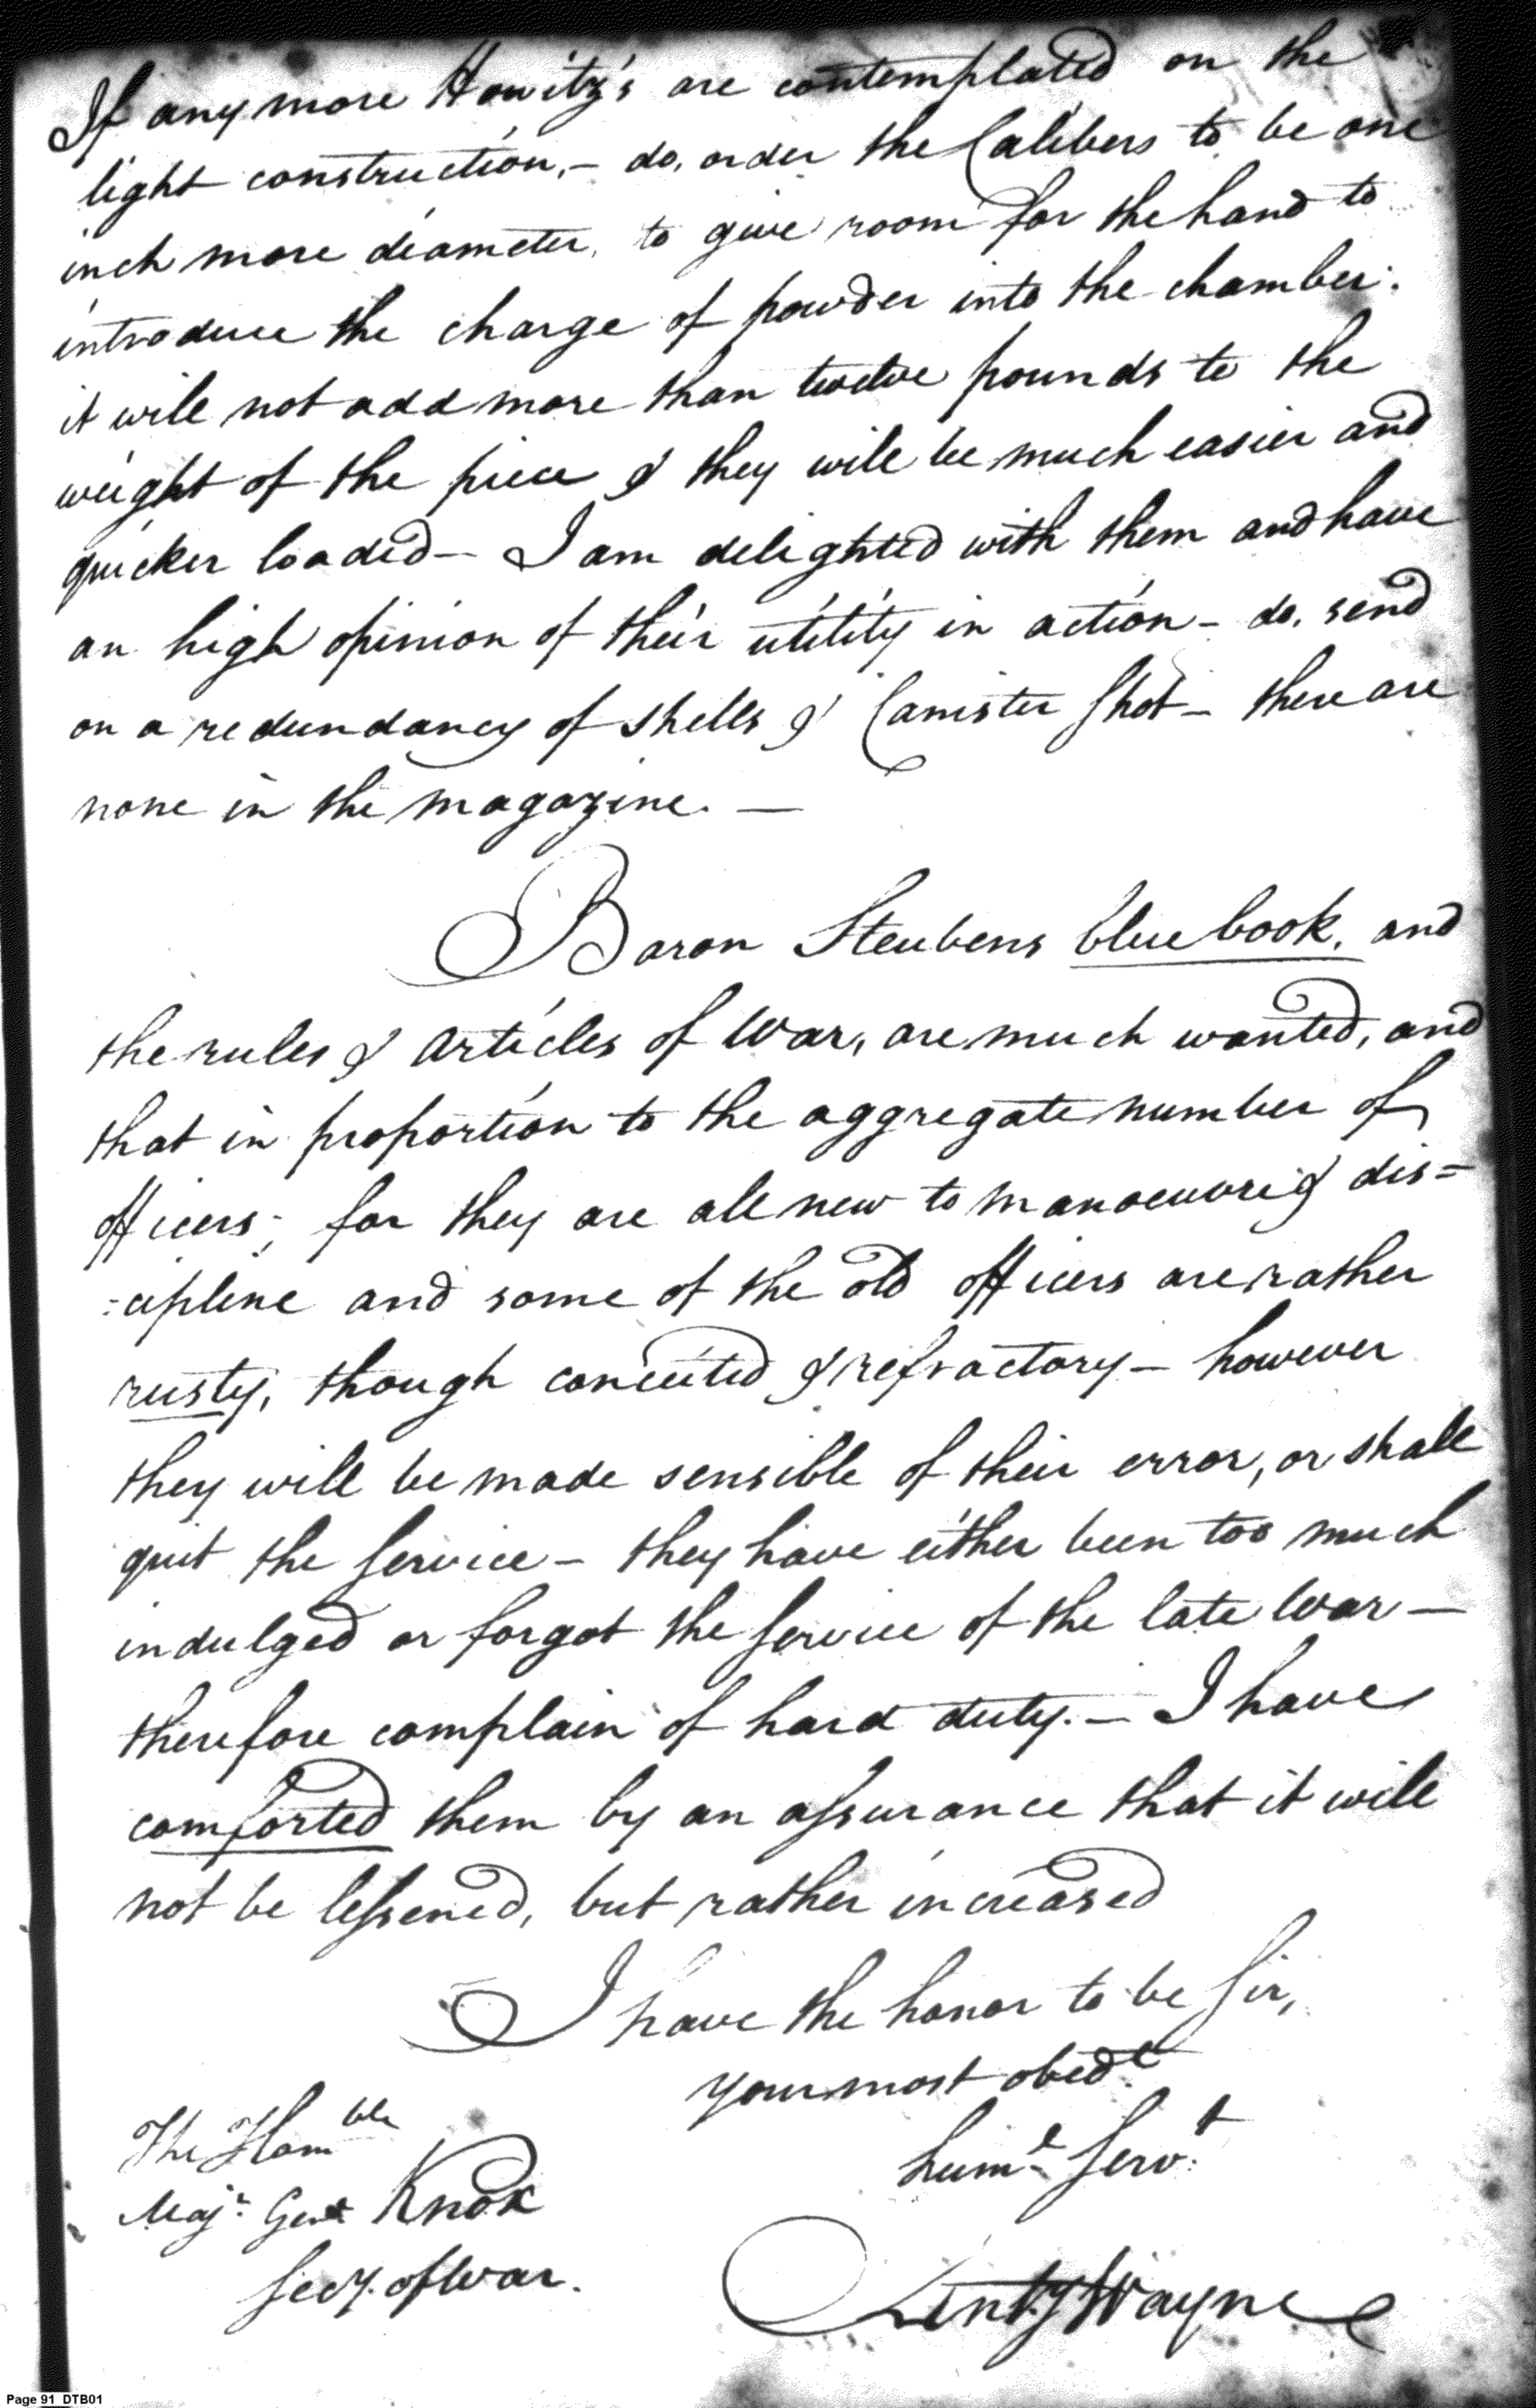 If any more Howitz's are contemplated on the
light construction, - do, order the Calibers to be one
inch more diameter, to give room for the hand to
introduce the charge of powder into the chamber:
it will not add more than twelve pounds to the
weight of the piece & they will be much easier and
quicker loaded - I am delighted with them and have
an high opinion of their utility in action - do, send
on a redundancy of shells & Canister Shot - there are
none in the magazine. -
Baron Steubens blue book, and
the rules & articles of War, are much wanted, and
that in proportion to the aggregate number of
officers; for they are all new to manoeuvre & dis=
=cipline and some of the old officers are rather
rusty, though conceited & refractory - however
they will be made sensible of their error, or shall
quit the Service - they have either been too much
indulged or forgot the Service of the late War -
therefore complain of hard duty. - I have
comforted them by an assurance that it will
not be lessened, but rather increased
I have the honor to be Sir,
your most obedt
humle Servt
The Honble
Majr Genl Knox
Secy. of War.
Anty Wayne
Page 91 DTB01